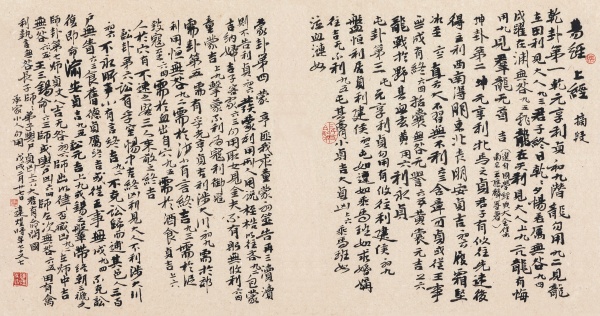 易經上經 摘錄
乾卦第一 乾元亨利貞初九潛龍勿用九二見龍
在田利見大人九三君子終日乾乾夕惕若厲無咎九四
或躍在淵無咎九五飛龍在天利見大人上九亢龍有悔
用九見群龍無首吉
坤卦第二 坤元亨利牝馬之貞君子有攸往先迷後
得主利西南得朋東北喪朋安貞吉初六履霜堅
冰至六二直方大不習無不利六三含章可貞或從王事
無成有終六四括囊無咎無譽六五黃裳元吉上六
龍戰於野其血玄黃用六利永貞
屯卦第三 屯元亨利貞勿用有攸往利建侯初九
磐桓利居貞利建侯六二屯如邅如乘馬班如匪寇婚媾
往吉無不利九五屯其膏小貞吉大貞凶上六乘馬班如
泣血漣如
蒙卦第四 蒙亨匪我求童蒙初筮告再三瀆瀆
則不告利貞初六發蒙利用刑人用說桎梏以往吝九二包蒙
吉納婦吉子克家六三勿用取女見金夫不有躬無攸利六四
童蒙吉上九擊蒙不利為寇利禦寇
需卦第五 需有孚光亨貞吉利涉大川初九需於郊
利用恆無咎九二需於沙小有言終吉九三需於泥
致寇至六四需於血出自穴九五需於酒食貞吉上六
入於穴有不速之客三人來敬之終吉
訟卦第六 訟有孚窒惕中吉終凶利見大人不利涉大川
初六不永所事小有言終吉九二不克訟歸而逋其邑人三百
戶無眚六三食舊德貞厲終吉或從王事無成九四不克訟
復即命渝安貞吉九五訟元吉上九或錫之鞶帶終朝三褫之
師卦第七 師貞丈人吉無咎初六師出以律否臧凶九二在師中吉
無咎王三錫命六三師或輿尸凶六四師左次無咎六五田有禽
利執言無咎長子帥師弟子輿尸貞凶上六大君有命開國
承家小人勿用